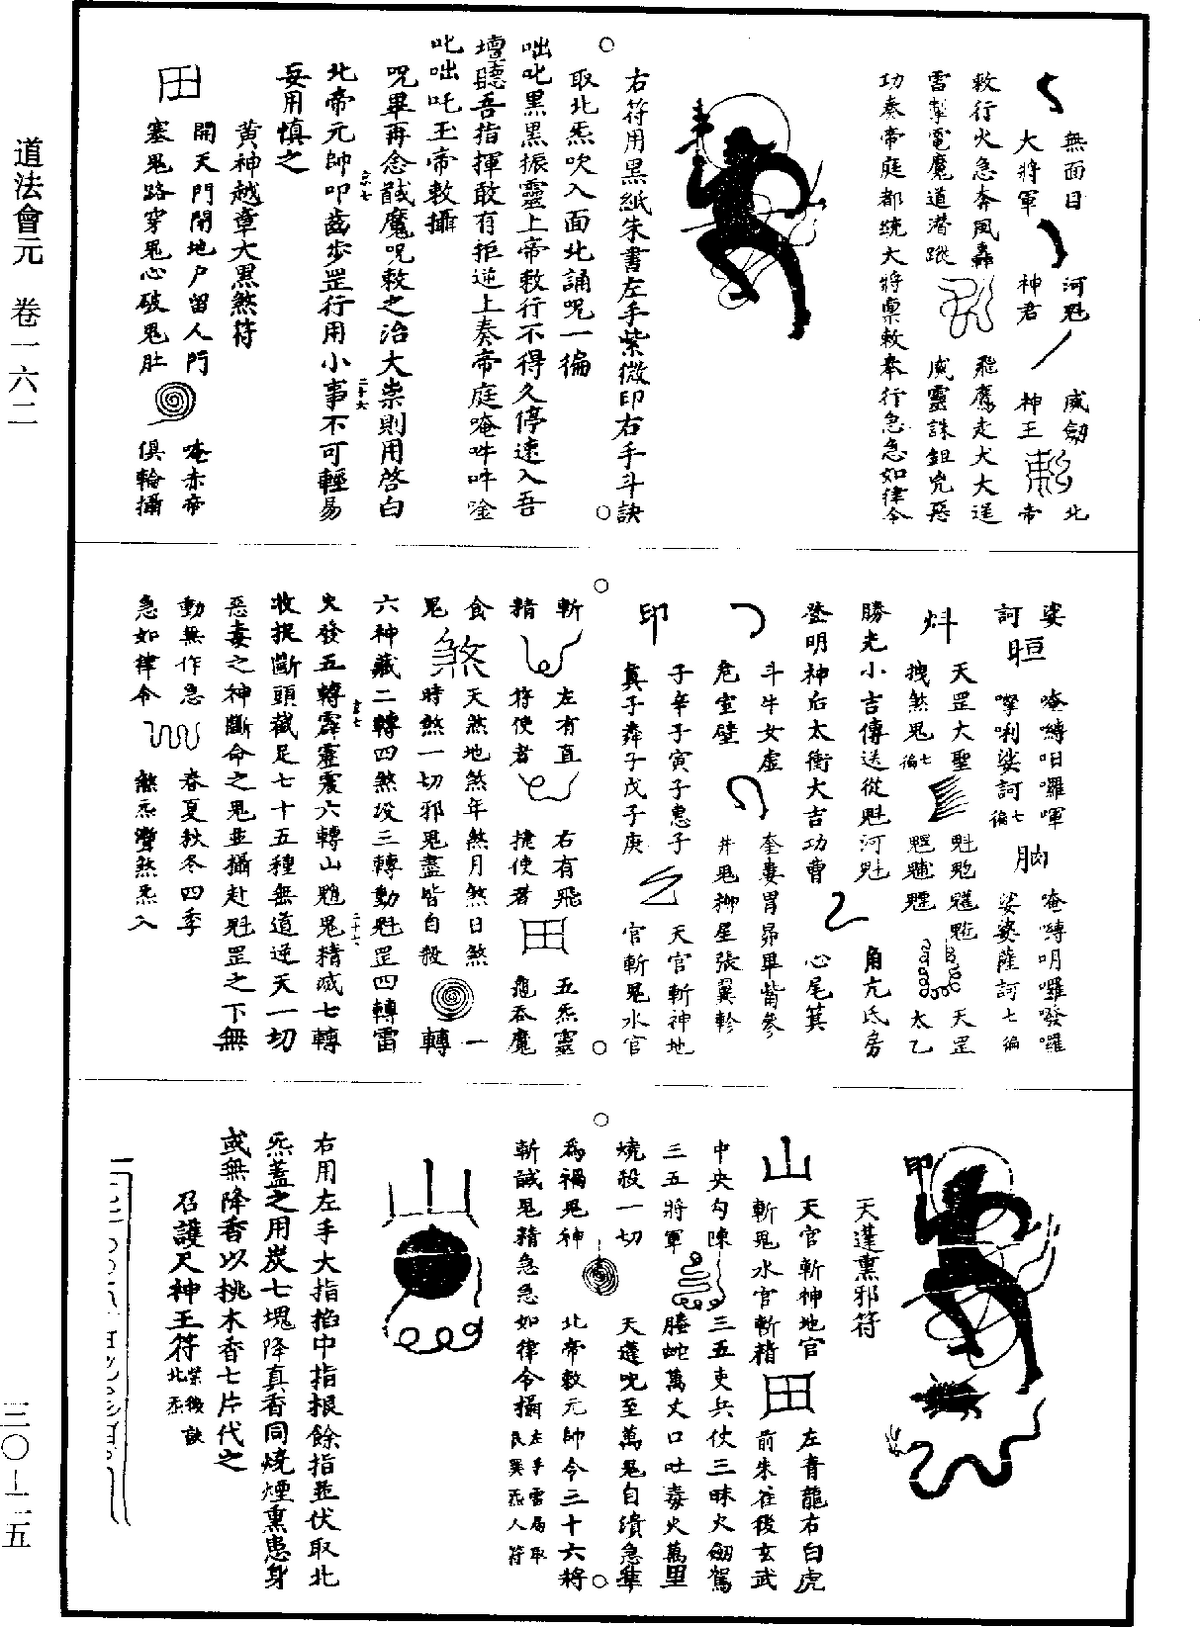 道法會元　卷一六二
三〇—二五
無面目　河魁　威劒　北
大將軍　神君　神王　帝
敕行火急奔風轟　飛鷹走犬大逞
雷掣電魔道潛蹤　威靈誅鉏兇惡
功奏帝庭都統大將稟敕奉行急急如律令
右符用黑紙朱書左手紫微印右手斗訣
取北炁吹入面北誦呪一徧
咄叱黑黑振靈上帝敕行不得久停速入吾
壇聽吾指揮敢有拒逆上奏帝庭唵吽吽唫
叱咄吒玉帝敕攝
呪畢再念馘魔呪敕之治大祟則用啓白
北帝元帥叩齒步罡行用小事不可輕易
妄用慎之
黃神越章大黑煞符
開天門開地戶留人門　唵赤帝
田　塞鬼路穿鬼心破鬼肚　俱輪攝
娑　唵縛呬囉㖶　唵縛呬囉發囉
訶　㗚唎娑訶七徧　娑婆薩訶七徧
天罡大聖　魁　天罡
拽煞鬼七徧　太乙
勝光小吉傳送從魁河魁　角亢氐房
登明神后太衝大吉功曹　心尾箕
斗牛女虛　奎婁胃昴畢觜參
危室壁　井鬼柳星張翼軫
印　子辛子寅子惠子　天官斬神地
真子犇子戊子庚　官斬鬼水官
斬　左有直　右有飛　五炁靈
精　符使者　捷使者　田　龜吞魔
食　煞　天煞地煞年煞月煞日煞　一
鬼　時煞一切邪鬼盡皆自殺　轉
六神藏二轉四煞沒三轉動魁罡四轉雷
火發五轉霹靂震六轉山魈鬼精滅七轉
收捉斷頭截足七十五種無道逆天一切
惡毒之神斷命之鬼並攝赴魁罡之下無
動無作急　春夏秋冬四季
急如律令　煞炁灣煞炁入
印
天蓬熏邪符
天官斬神地官　左青龍右白虎
山　斬鬼水官斬精　田　前朱雀後玄武
中央勾陳　三五吏兵仗三昧火劒駕
三五將軍　螣蛇萬丈口吐毒火萬里
燒殺一切　天蓬呪至萬鬼自潰急準
為禍鬼神　北帝敕元帥令三十六將
斬馘鬼精急急如律令攝左手雷局取艮巽炁入符
右用左手大指掐中指根餘指並伏取北
炁蓋之用炭七塊降真香同燒煙熏患身
或無降香以桃木香七片代之
召護尺神王符紫微訣北炁